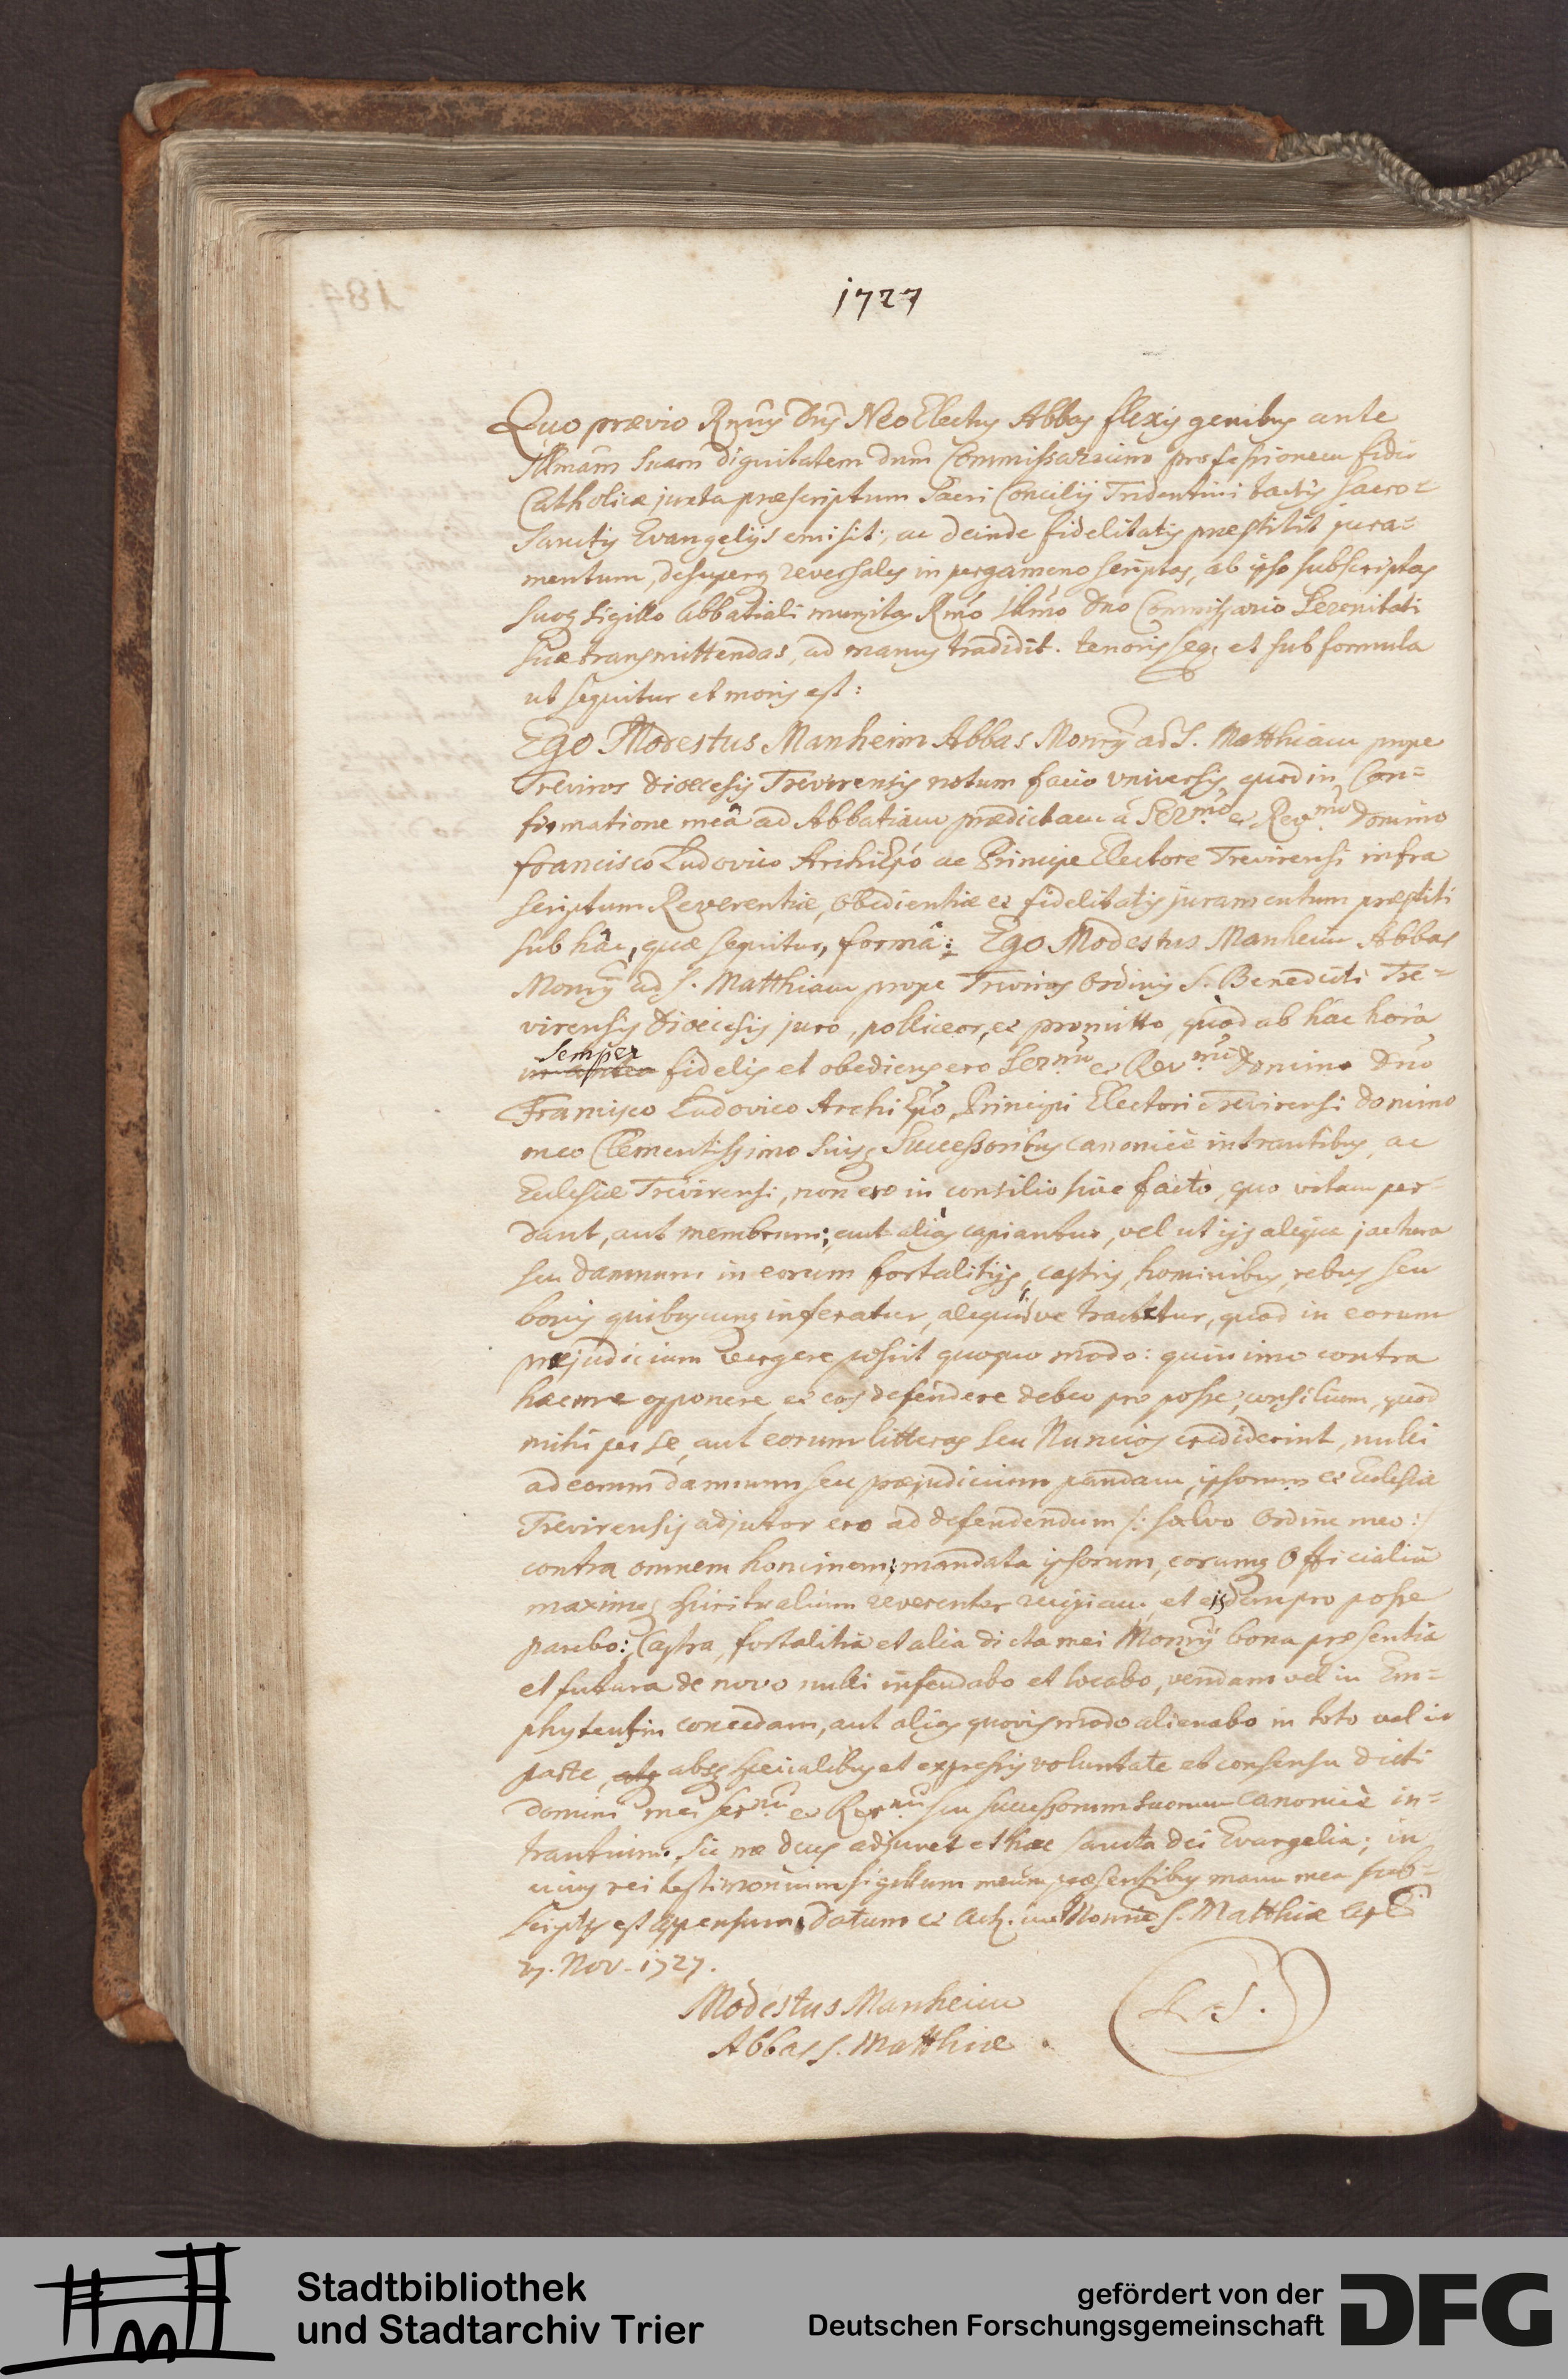 1727
Quo prævio Rmus Dnus NeoElectus Abbas flexis genibus ante
Illmam Suam dignitatem dnum Commissarium professionem fidei
Catholicæ juxta præscriptum Sacri Concilij Tridentini tactis sacro-
Sanctis Evangelijs emisit, ac deinde fidelitatis præstitit jura-
mentum, desuperq reversales in pergameno scriptas, ab ipso subscriptas
suoq sigillo Abbatiali munitas Rmo Illmo Dno Commissario Serenitati
Suæ transmittendas, ad manus tradidit. tenoris seq. et sub formula
ut sequitur et moris est:
Ego Modestus Manheim Abbas Monrij ad S. Matthiam prope
Treviros Diœcesis Trevirensis notum facio vniversis, quod in Con-
firmatione meâ ad Abbatiam prædictam â Sermo et Revmo Domino
Francisco Ludovico ArchiEpo ac Principe Electore Trevirensi infra
scriptum Reverentiæ, obedientiæ et fidelitatis juramentum præstiti
sub hâc, quæ sequitur, formâ: Ego Modestus Manheim Abbas
Monrij ad S. Matthiam prope Treviros Ordinis S. Benedicti Tre-
virensis Diœcesis juro, polliceor, et promitto, quòd ab hâc horâ
semper
in antea fidelis et obediens ero Sermo et Revmo Domino Dno
Francisco Ludovico ArchiEpo, Principi Electori Trevirensi Domino
meo Clementissimo suisq Successoribus canonicè intrantibus, ac
Ecclesiæ Trevirensi, non ero in consilio sive facto, quo vitam per-
dant, aut membrum; aut aliàs capiantur, vel ut ijs aliqua jactura
seu damnum in eorum fortalitijs, castris, hominibus, rebus seu
bonis quibuscunq inferatur, aliquidve tractetur, quod in eorum
præjudicium vergere possit quoquo modo: quin imo contra
hæc me opponere, et eos defendere debeo pro posse; consilium, quod
mihi per se, aut eorum litteras seu Nuncios crediderint, nulli
ad eorum damnum seu præjudicium pandam, ipsorum et Ecclesiæ
Trevirensis adjutor ero ad defendendum /: salvo Ordine meo :/
contra omnem hominem; mandata ipsorum, eorumq Officialiũ
maximeq spiritualium reverenter recipiam, et eisdem pro posse
parebo: Castra, fortalitia et alia dicta mei Monrij bona præsentia
et futura de novo nulli infeudabo et locabo, vendam vel in Em-
phyteusin concedam, aut alias quovis modo alienabo in toto vel in
parte, atq absq specialibus et expressis voluntate et consensu dicti
Domini mei Sermi et Revmi seu successorum suorum canonicè in-
trantium. Sic me deus adjuvet et hæc sancta Dei Evangelia; in
cuius rei testimonium sigillum meum præsentibus manu mea sub-
scriptis est appensum. Datum et Act. in Monrio S. Matthiæ Apli
27. Nov. 1727.
Modestus Manheim
Abbas S. Matthiæ.
L. S.
Stadtbibliothek
und Stadtarchiv Trier
gefördert von der
Deutschen Forschungsgemeinschaft
DFG